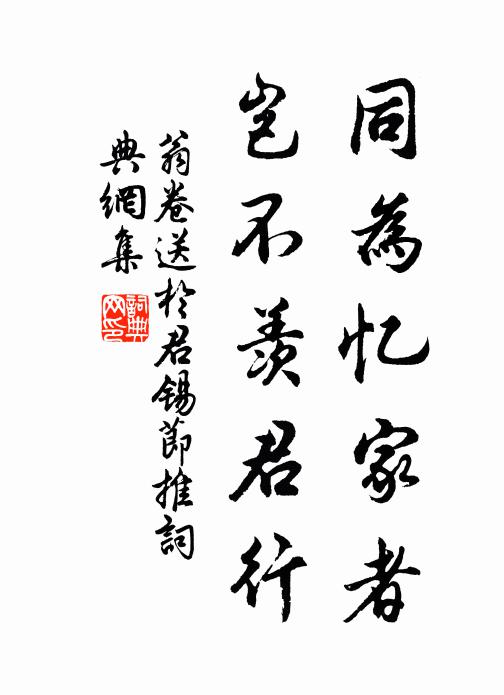 同為忆家者
岂不羨君行
翁卷送於君錫節推詞
典網集
詞典网印